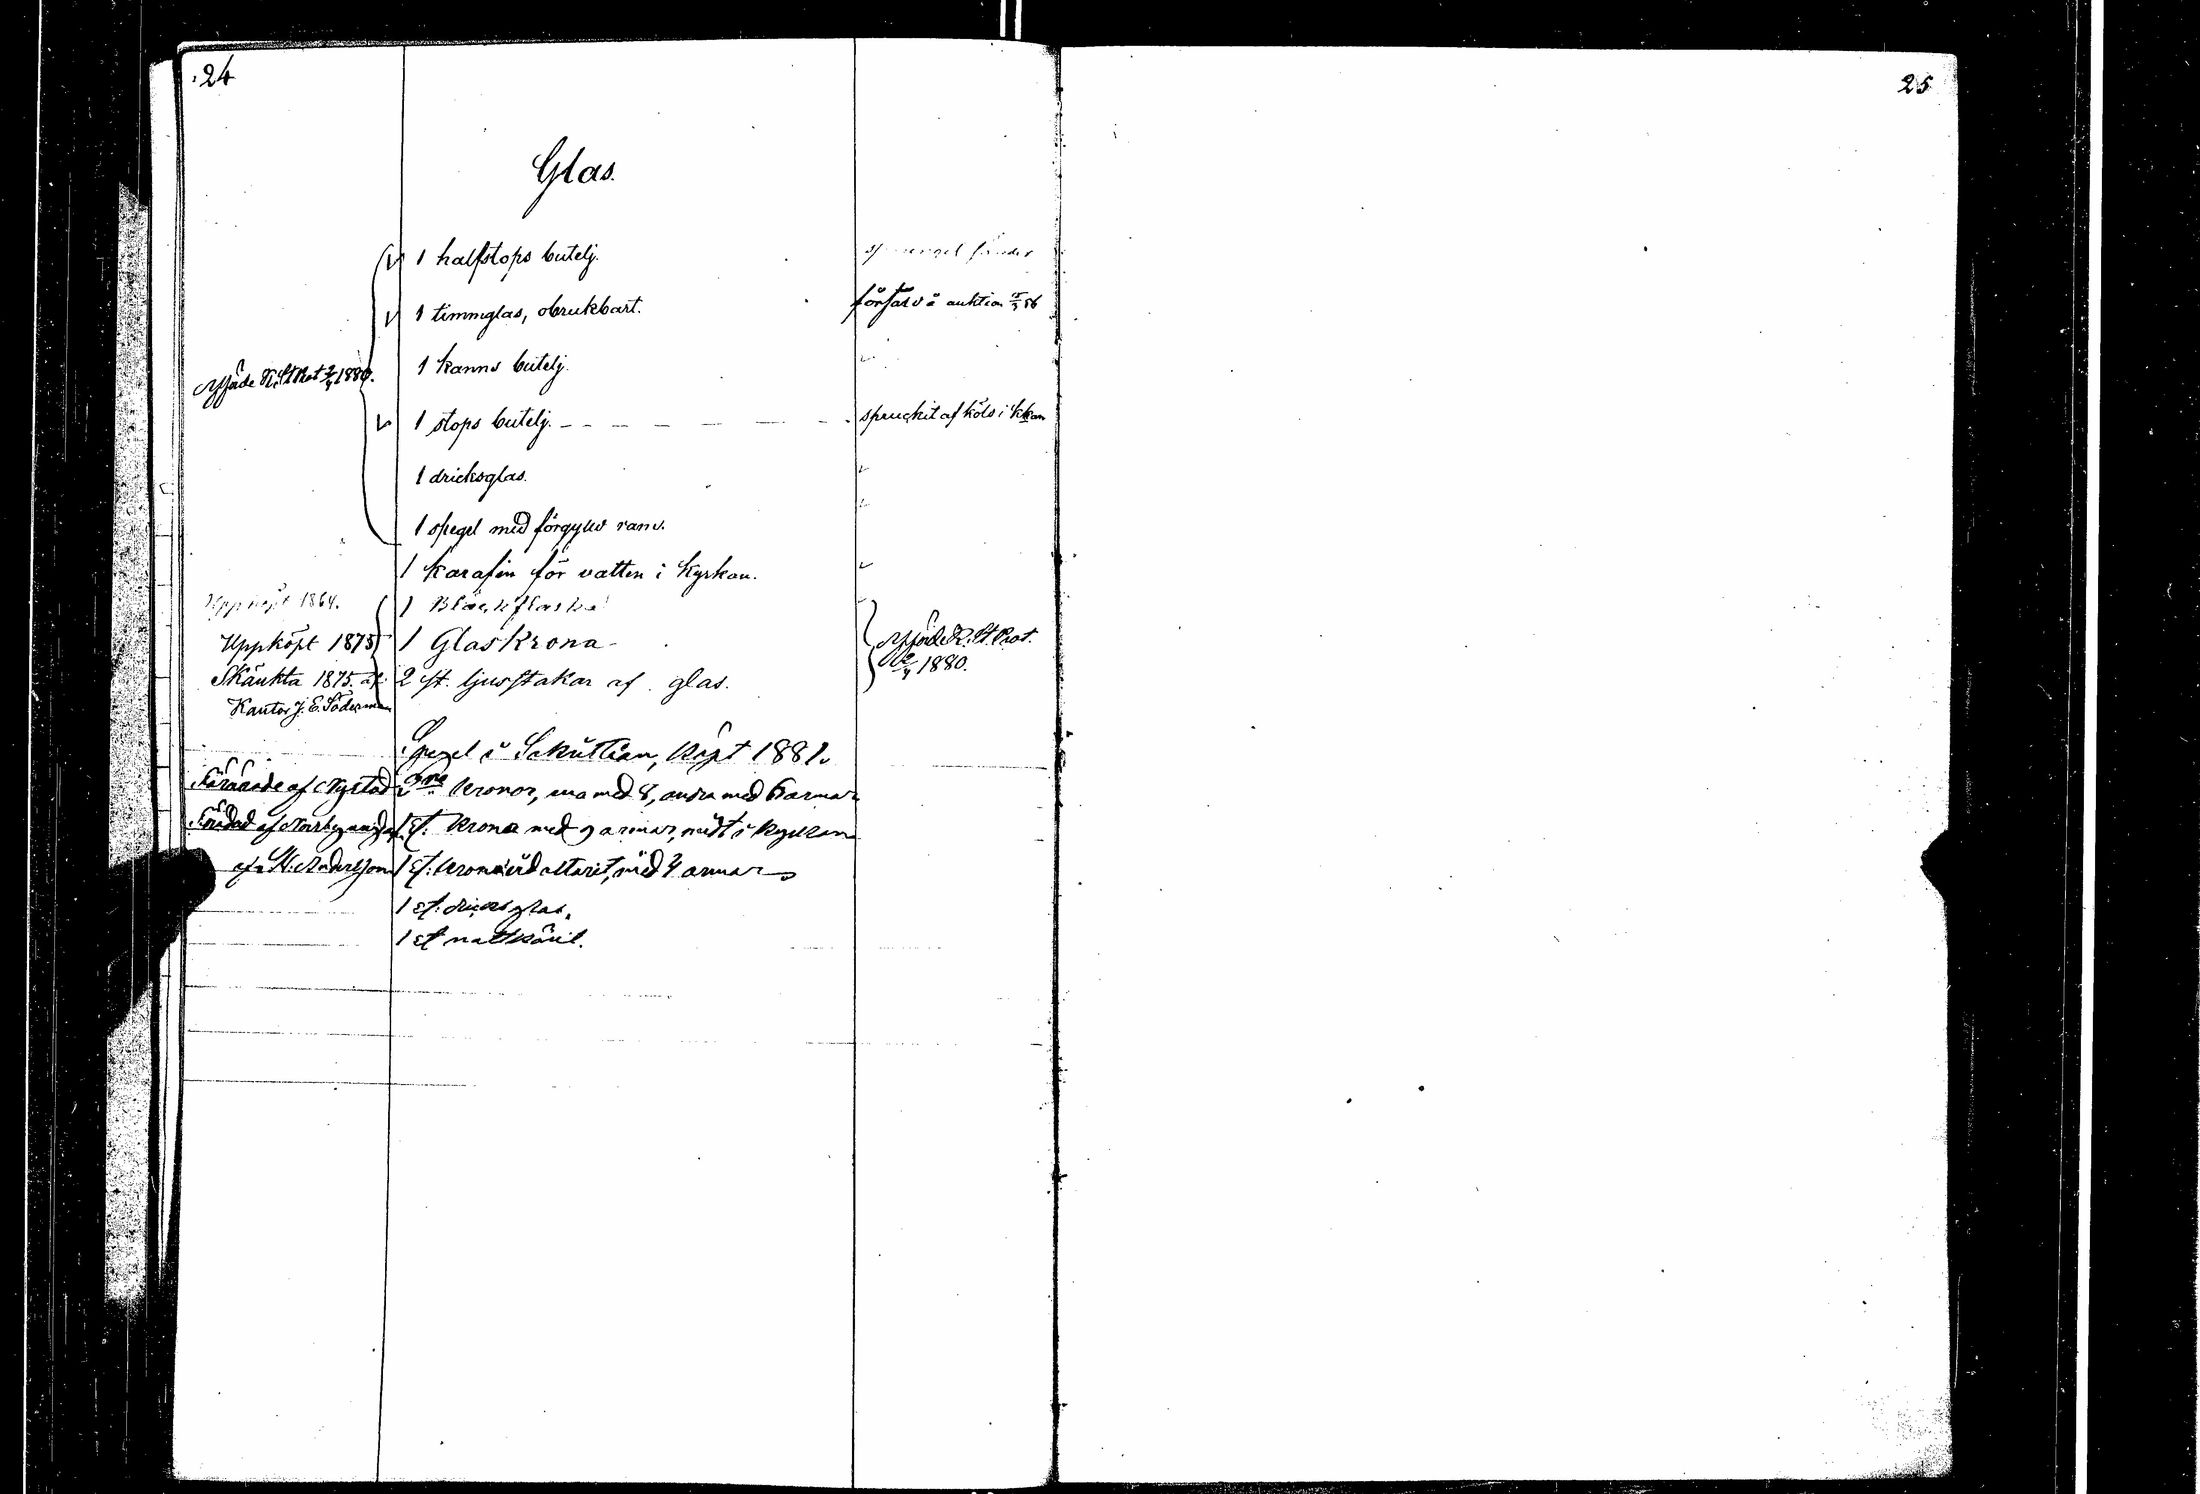 24
25
Glas.
1 halfstops butelj.
1 timmglas, obrukbart. försåld å auktion
1 kanns butelj.
K. St. Prot 2/4 1880.
1 stops butelj. - - - - - - spruckit af köld i kkan
1 dricksglas.
1 spegel med förgylld rand.
1 Karafin för vatten i Kyrkan.
Uppköpt 1864. 1 Bläckflaska
Uppköpt 1875 1 Glaskrona -
K. St. Prot.
1880.
Skänkta 1875 af 2 st. ljusstakar af glas.
Kantor J. E. Söderman
Spegel i Sakristian, köpt 1881.
Förärade af Nystad 2ne Kronor, ena med 8, andra med 6 armar
1 st. Krona med 9 armar, midt i kyrkan
af Andersson 1 st. Krona vid altaret, med 4 armar
1 st. dricksglas.
1 st nattkäril.